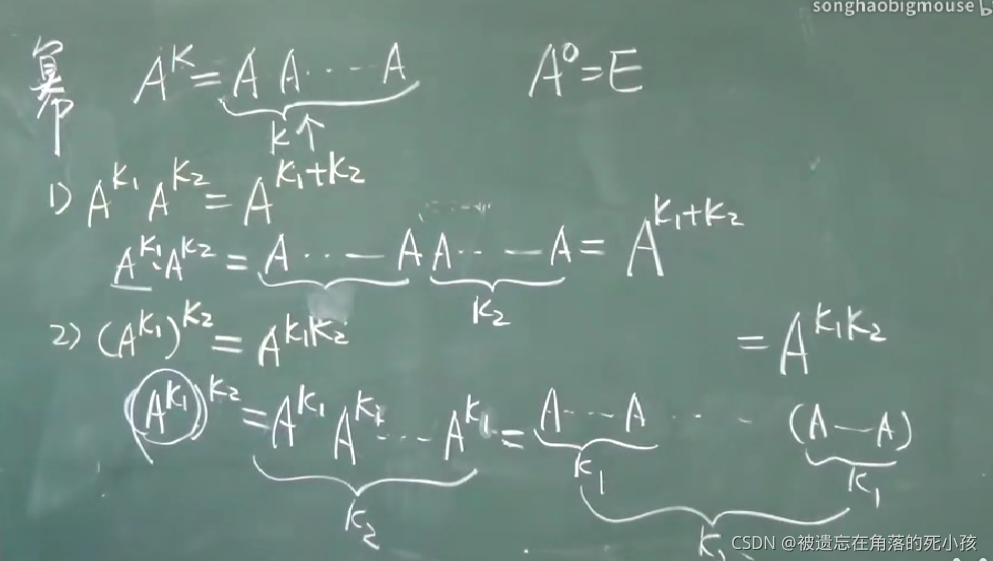 songhaobigmouse b
幂 A^K = A A ⋯ — A A^0 = E
K ↑
1) A^{K_1} A^{K_2} = A^{K_1+K_2}
A^{K_1}·A^{K_2} = A ⋯ — A A ⋯ — A = A^{K_1+K_2}
K_2
2) (A^{K_1})^{K_2} = A^{K_1K_2} = A^{K_1K_2}
(A^{K_1})^{K_2} = A^{K_1} A^{K_1} ⋯ A^{K_1} = A ⋯ A ⋯ (A — A)
K_1 K_1
K_2
CSDN @被遗忘在角落的死小孩